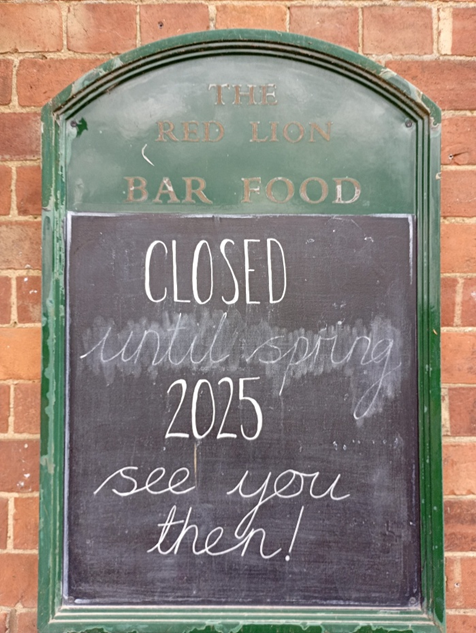 THE
RED LION
BAR FOOD
CLOSED
until spring
2025
see you
then!